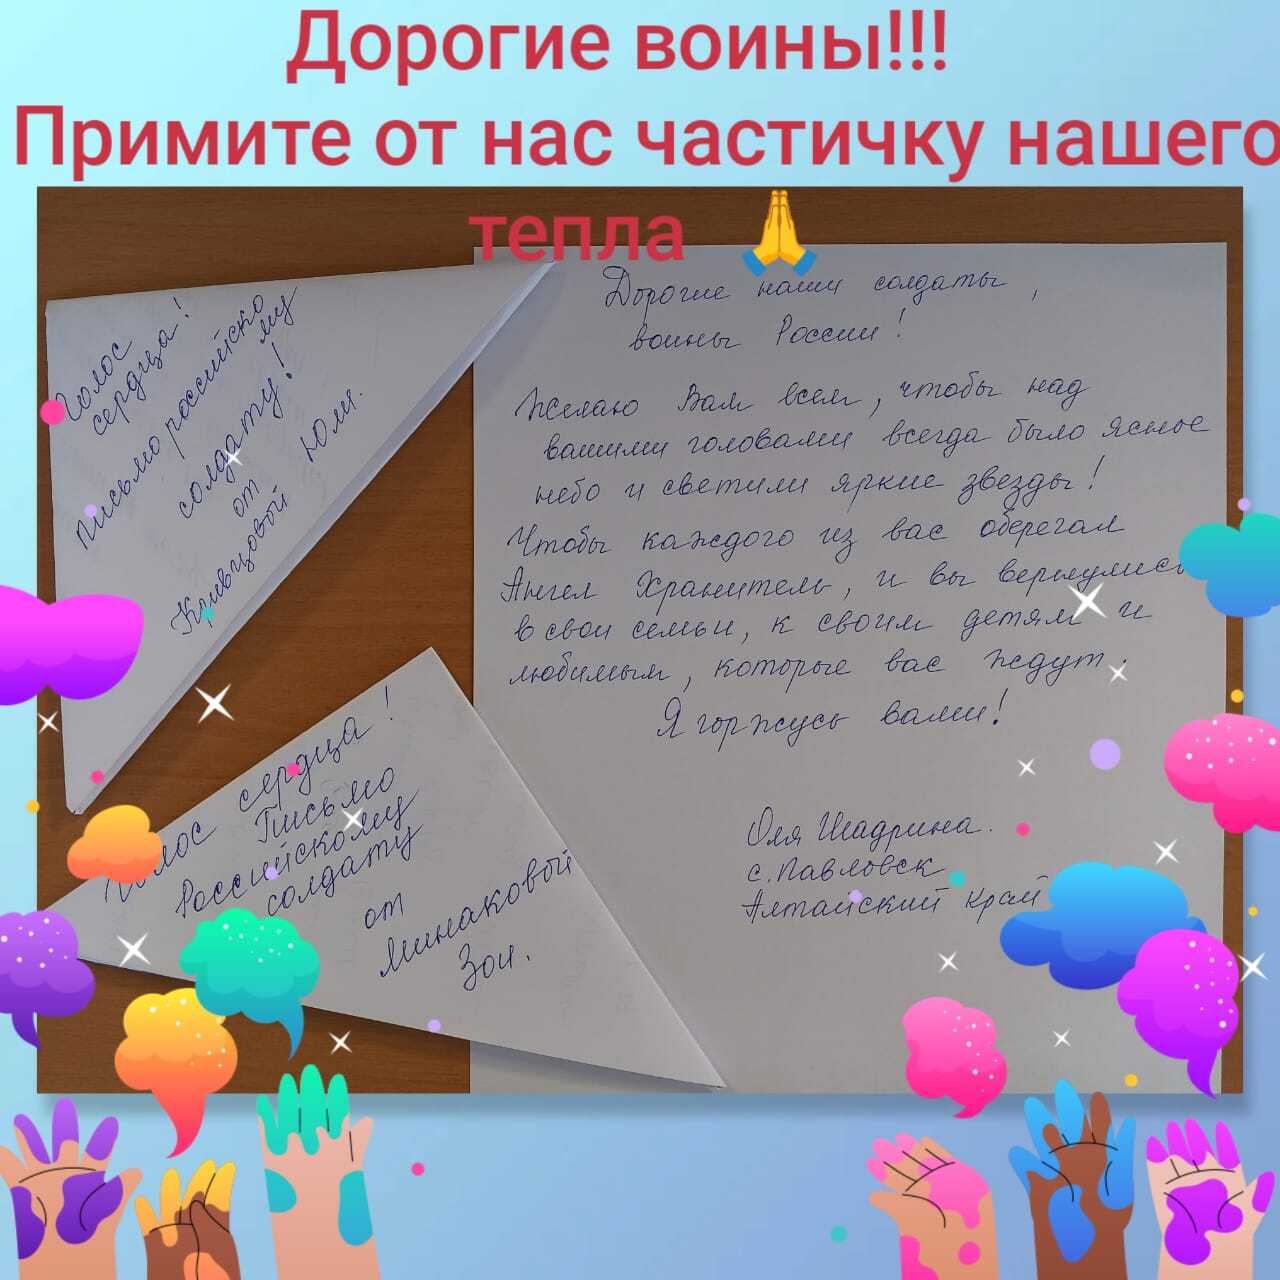 Дорогие воины!!!
Примите от нас частичку нашего
тепла 🙏
Голос
сердца!
письмо российско
му
солдату!
от
Кривцовой Юли.
Дорогие наши солдаты,
воины России!
Желаю Вам всем, чтобы над
вашими головами всегда было ясное
небо и светили яркие звезды!
Чтобы каждого из вас оберегал
Ангел Хранитель, и вы вернулись
в свои семьи, к своим детям и
любимым, которые вас ждут.
Я горжусь вами!
Оля Шадрина.
с. Павловск
Алтайский край
Голос сердца!
Письмо
Российскому
солдату
от
Минаковой
Зои.